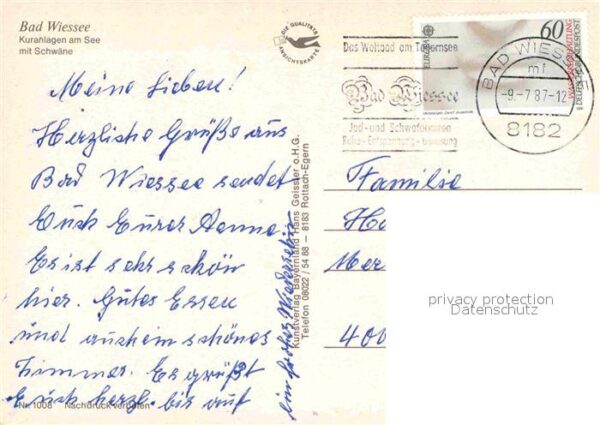 Bad Wiessee
Kuranlagen am See
mit Schwäne
DIE QUALITÄTS
ANSICHTSKARTE
Das Weltbad am Tegernsee
Bad Wiessee
Jod- und Schwefelquellen
EUROPA
60
DEUTSCHE BUNDESPOST
BAD WIESSEE
mf
-9.-7.87-12
8182
Meine Lieben!
Herzliche Grüße aus
Bad Wiessee sendet
Euch Eurer
Es ist sehr schön
hier. Gutes Essen
und auch ein schönes
Zimmer. Es grüßt
Euch herzl. bis auf
ein frohes Wiedersehen
Kunstverlag Bayernland Hans Geissler o.H.G.
Telefon 08022 / 54 88 – 8183 Rottach-Egern
Familie
Ha
Mer
400
privacy protection
Datenschutz
Nr. 1008 Nachdruck verboten